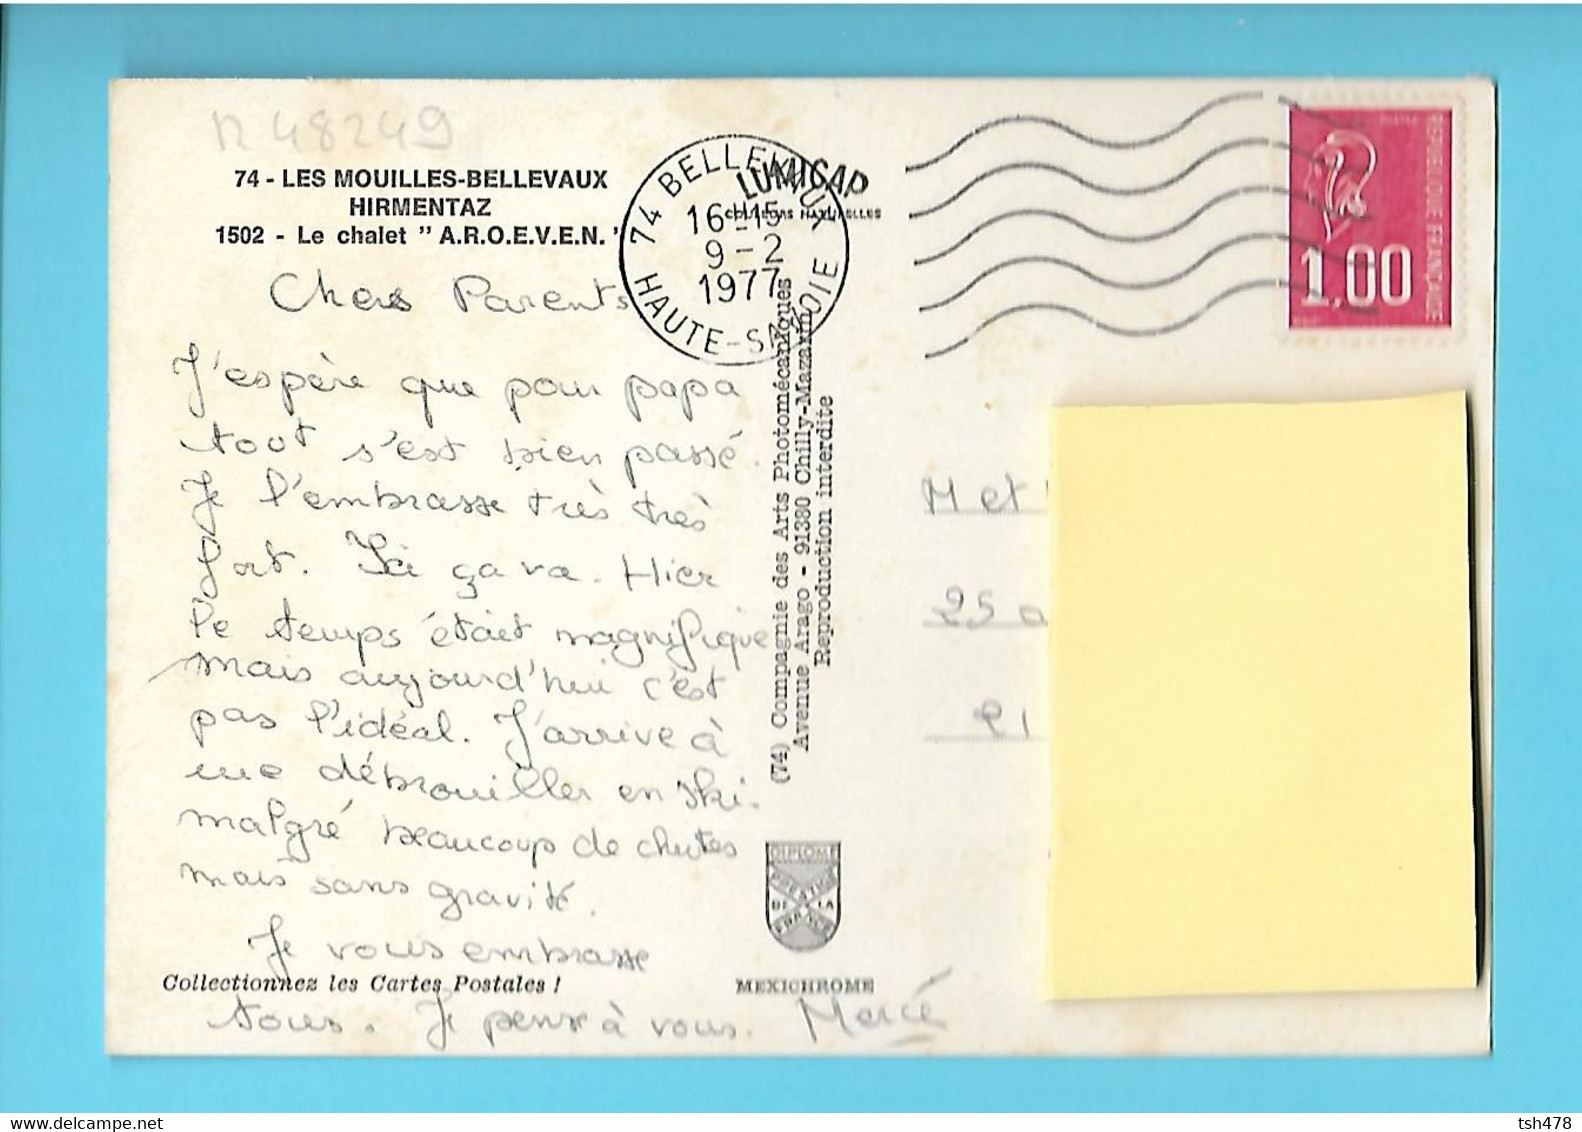 R 48249
74 - LES MOUILLES-BELLEVAUX
HIRMENTAZ
1502 - Le chalet " A.R.O.E.V.E.N. "
LUMICAP
COULEURS NATURELLES
74 BELLEVAUX
16 H 15
9 - 2
1977
HAUTE-SAVOIE
REPUBLIQUE FRANÇAISE
POSTES
1,00
Chers Parents
J'espère que pour papa
tout s'est bien passé.
Je l'embrasse très très
fort. Ici ça va. Hier
le temps était magnifique
mais aujourd'hui c'est
pas l'idéal. J'arrive à
me débrouiller en ski.
malgré beaucoup de chutes
mais sans gravité.
Je vous embrasse
tous. Je pense à vous.
(74) Compagnie des Arts Photomécaniques
Avenue Arago - 91380 Chilly-Mazarin
Reproduction interdite
M et
25
91
DIPLOME
PRESTIGE
DE LA
FRANCE
Collectionnez les Cartes Postales !
MEXICHROME
www.delcampe.net
tsh478